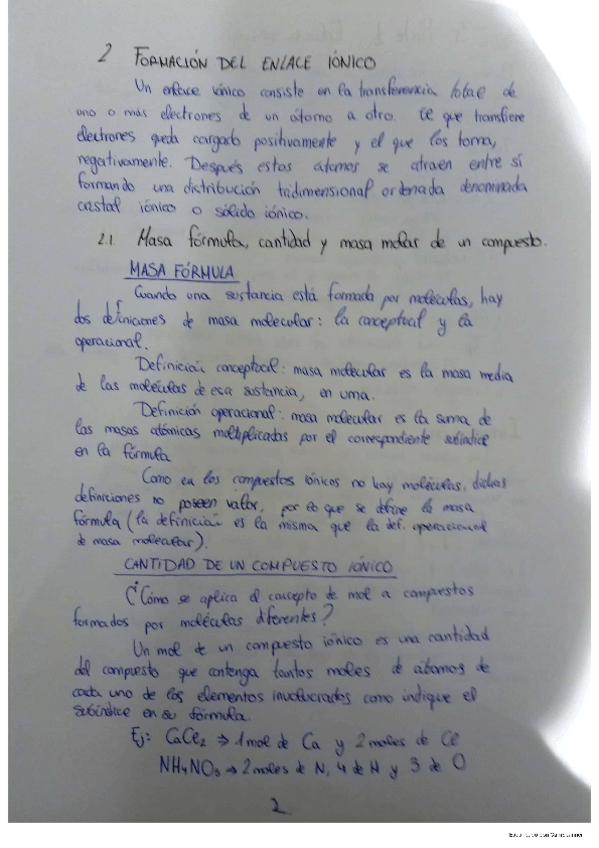 2 FORMACIÓN DEL ENLACE IÓNICO
Un enlace iónico consiste en la transferencia total de
uno o más electrones de un átomo a otro. El que transfiere
electrones queda cargado positivamente y el que los toma,
negativamente. Después estos átomos se atraen entre sí
formando una distribución tridimensional ordenada denominada
cristal iónico o sólido iónico.
2.1. Masa fórmula, cantidad y masa molar de un compuesto.
MASA FÓRMULA
Cuando una sustancia está formada por moléculas, hay
dos definiciones de masa molecular: la conceptual y la
operacional.
Definición conceptual: masa molecular es la masa media
de las moléculas de esa sustancia, en uma.
Definición operacional: masa molecular es la suma de
las masas atómicas multiplicadas por el correspondiente subíndice
en la fórmula
Como en los compuestos iónicos no hay moléculas, dichas
definiciones no poseen valor, por lo que se define la masa
fórmula (la definición es la misma que la def. operacional
de masa molecular).
CANTIDAD DE UN COMPUESTO IÓNICO
¿Cómo se aplica el concepto de mol a compuestos
formados por moléculas diferentes?
Un mol de un compuesto iónico es una cantidad
del compuesto que contenga tantos moles de átomos de
cada uno de los elementos involucrados como indique el
subíndice en su fórmula.
Ej: CaCl₂ → 1 mol de Ca y 2 moles de Cl
NH₄NO₃ → 2 moles de N, 4 de H y 3 de O
2